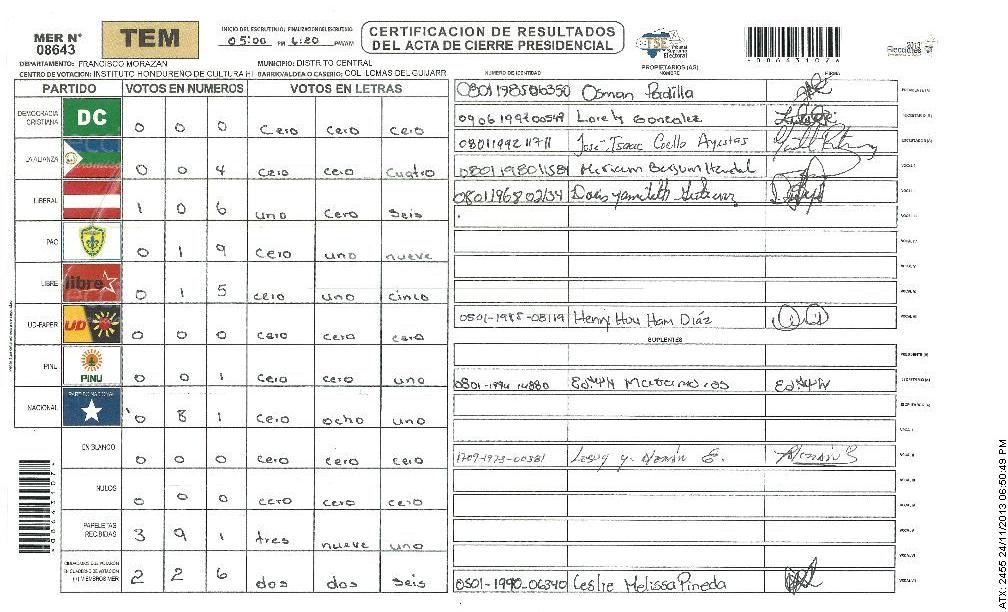 MER N°
08643
TEM
INICIO DEL ESCRUTINIO: FINALIZACION DEL ESCRUTINIO
05:00 PM 6:20 PM/AM
CERTIFICACION DE RESULTADOS
DEL ACTA DE CIERRE PRESIDENCIAL
TSE Tribunal Supremo Electoral
Elecciones 2013
DEPARTAMENTO: FRANCISCO MORAZAN MUNICIPIO: DISTRITO CENTRAL
CENTRO DE VOTACION: INSTITUTO HONDUREÑO DE CULTURA HI BARRIO/ALDEA O CASERIO: COL. LOMAS DEL GUIJARR
PARTIDO VOTOS EN NUMEROS VOTOS EN LETRAS
DEMOCRACIA CRISTIANA DC 0 0 0 cero cero cero
LA ALIANZA 0 0 4 cero cero cuatro
LIBERAL 1 0 6 uno cero seis
PAC 0 1 9 cero uno nueve
LIBRE libre 0 1 5 cero uno cinco
UD-FAPER UD 0 0 0 cero cero cero
PINU PINU 0 0 1 cero cero uno
NACIONAL PARTIDO NACIONAL 0 8 1 cero ocho uno
EN BLANCO 0 0 0 cero cero cero
NULOS 0 0 0 cero cero cero
PAPELETAS RECIBIDAS 3 9 1 tres nueve uno
CIUDADANOS QUE VOTARON EN CUADERNO DE VOTACION (+) MIEMBROS MER 2 2 6 dos dos seis
PROPIETARIOS (AS)
NUMERO DE IDENTIDAD NOMBRE FIRMA
0801198506350 Osman Padilla PRESIDENTE (A)
0906199200549 Lorely Gonzalez SECRETARIO (A)
0801199211711 José Isaac Coello ESCRUTADOR (A)
0801198011581 Miriam VOCAL I
0801196802134 Doris Yamileth Gutierrez VOCAL II
VOCAL III
VOCAL IV
VOCAL V
VOCAL VI
0501-1985-08119 Henry Hou Ham Díaz VOCAL VII
SUPLENTES
PRESIDENTE (A)
0801-1994-14880 Edwin Matamoros Edwin SECRETARIO (A)
ESCRUTADOR (A)
VOCAL I
1709-1973-00381 VOCAL II
VOCAL III
VOCAL IV
VOCAL V
VOCAL VI
0501-1990-06340 Leslie Melissa Pineda VOCAL VII
ATX: 2455 24/11/2013 06:50:49 PM